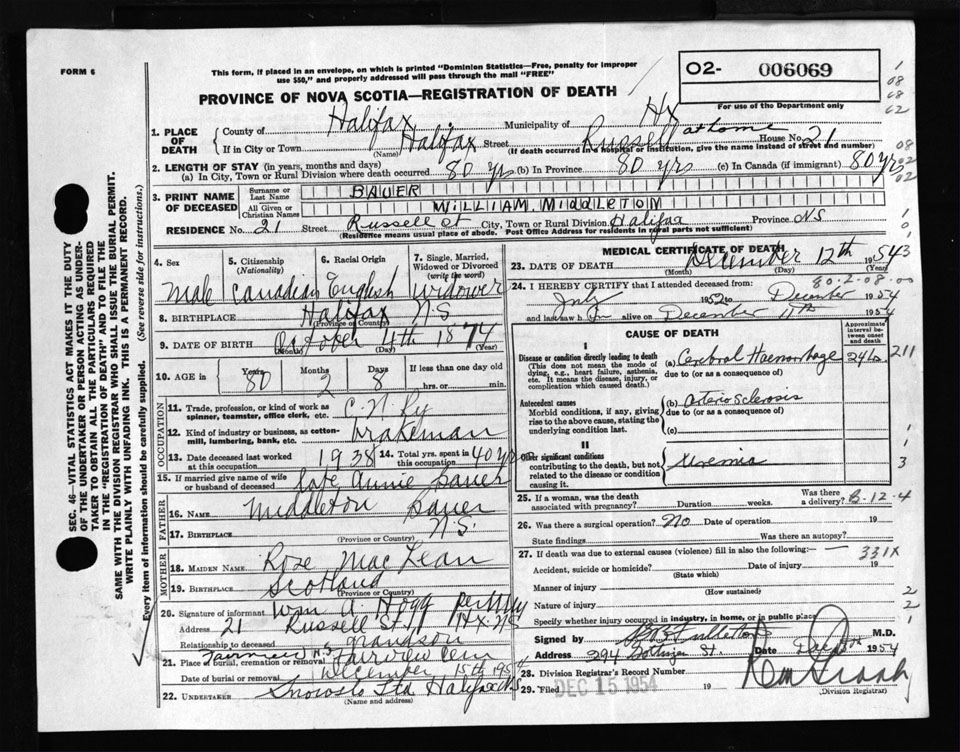 FORM 6
This form, if placed in an envelope, on which is printed "Dominion Statistics—Free, penalty for improper
use $50," and properly addressed will pass through the mail "FREE"
O2- 006069
For use of the Department only
PROVINCE OF NOVA SCOTIA—REGISTRATION OF DEATH
1. PLACE OF DEATH { County of Halifax Municipality of Hx
If in City or Town Halifax Street Russell at home House No. 21
(Name) (If death occurred in a hospital or institution, give the name instead of street and number)
2. LENGTH OF STAY (in years, months and days)
(a) In City, Town or Rural Division where death occurred 80 yrs (b) In Province 80 yrs (c) In Canada (if immigrant) 80 yrs
3. PRINT NAME OF DECEASED { Surname or Last Name BAUER
All Given or Christian Names WILLIAM MIDDLETON
RESIDENCE No. 21 Street Russell St City, Town or Rural Division Halifax Province NS
(Residence means usual place of abode. Post Office Address for residents in rural parts not sufficient)
4. Sex
Male
5. Citizenship (Nationality)
Canadian
6. Racial Origin
English
7. Single, Married, Widowed or Divorced (write the word)
Widower
8. BIRTHPLACE Halifax N.S.
(Province or Country)
9. DATE OF BIRTH October 4th 1874
(Month) (Day) (Year)
10. AGE in Years 80 Months 2 Days 8 If less than one day old
hrs. or min.
OCCUPATION
11. Trade, profession, or kind of work as spinner, teamster, office clerk, etc. C.N.Ry
12. Kind of industry or business, as cotton-mill, lumbering, bank, etc. brakeman
13. Date deceased last worked at this occupation 1938 14. Total yrs. spent in this occupation 40 yrs
15. If married give name of wife or husband of deceased late Annie Bauer
FATHER
16. NAME Middleton Bauer
17. BIRTHPLACE N.S.
(Province or Country)
MOTHER
18. MAIDEN NAME Rose MacLean
19. BIRTHPLACE Scotland
(Province or Country)
20. Signature of informant Wm A. Hogg per
Address 21 Russell St. Hx. N.S.
Relationship to deceased grandson
21. Place of burial, cremation or removal Fairview N.S. Fairview Cem
Date of burial or removal December 15th 195
22. UNDERTAKER Snows Ltd Halifax NS
(Name and address)
MEDICAL CERTIFICATE OF DEATH
23. DATE OF DEATH December 12th 1954
(Month) (Day) (Year)
80-2-08-00
24. I HEREBY CERTIFY that I attended deceased from:
July 1952 to December 1954
and last saw him alive on December 11th 1954
CAUSE OF DEATH
Approximate interval between onset and death
I
Disease or condition directly leading to death (a) Cerebral Haemorrhage 24 hs. 211
(This does not mean the mode of dying, e.g., heart failure, asthenia, etc. It means the disease, injury, or complication which caused death.)
due to (or as a consequence of)
Antecedent causes (b) Arterio Sclerosis
Morbid conditions, if any, giving rise to the above cause, stating the underlying condition last.
due to (or as a consequence of)
(c)
II
Other significant conditions Uremia
contributing to the death, but not related to the disease or condition causing it.
25. If a woman, was the death associated with pregnancy? Duration weeks. Was there a delivery? B-12-4
26. Was there a surgical operation? No Date of operation 19
State findings Was there an autopsy?
27. If death was due to external causes (violence) fill in also the following:— 331X
Accident, suicide or homicide? Date of injury 19
(State which)
Manner of injury
(How sustained)
Nature of injury
Specify whether injury occurred in industry, in home, or in public place
Signed by Fullerton M.D.
Address 294 Gottingen St. Date Dec 1954
28. Division Registrar's Record Number
29. Filed DEC 15 1954 19
(Division Registrar)
SEC. 46—VITAL STATISTICS ACT MAKES IT THE DUTY
OF THE UNDERTAKER OR PERSON ACTING AS UNDER-
TAKER TO OBTAIN ALL THE PARTICULARS REQUIRED
IN THE "REGISTRATION OF DEATH" AND TO FILE THE
SAME WITH THE DIVISION REGISTRAR WHO SHALL ISSUE THE BURIAL PERMIT.
WRITE PLAINLY WITH UNFADING INK. THIS IS A PERMANENT RECORD.
Every item of information should be carefully supplied. (See reverse side for instructions.)